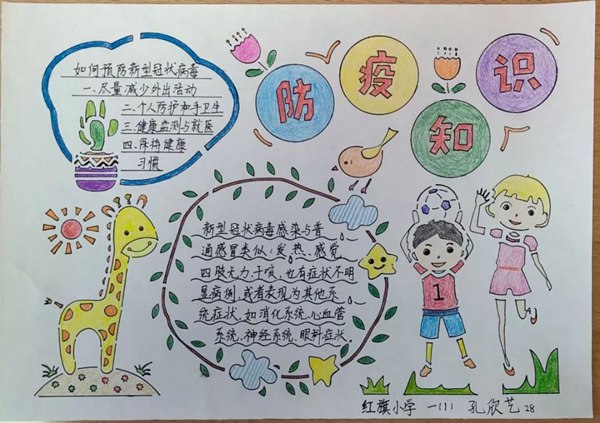 防疫知识
如何预防新型冠状病毒
一、尽量减少外出活动
二、个人防护和手卫生
三、健康监测与就医
四、保持健康
习惯
新型冠状病毒感染与普
通感冒类似:发热、感觉
四肢无力、干咳,也有症状不明
显病例,或者表现为其他系
统症状。如消化系统、心血管
系统、神经系统、眼科症状。
1
红旗小学 一(1) 孔欣艺 28